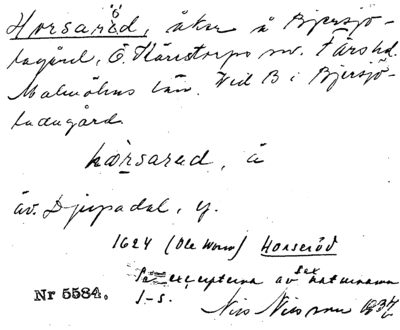 Horsaröd, åker å Bjersjö-
lagård, Ö. Kärrstorps sn. Färs hd.
Malmöhus län. Vid B i Bjersjö-
ladugård.
hạrsarad, å
äv. Djupadal, y.
1624 (Ole Worm) Horseröd
av
Nr 5584. s-s. Nils Nilsson 1937